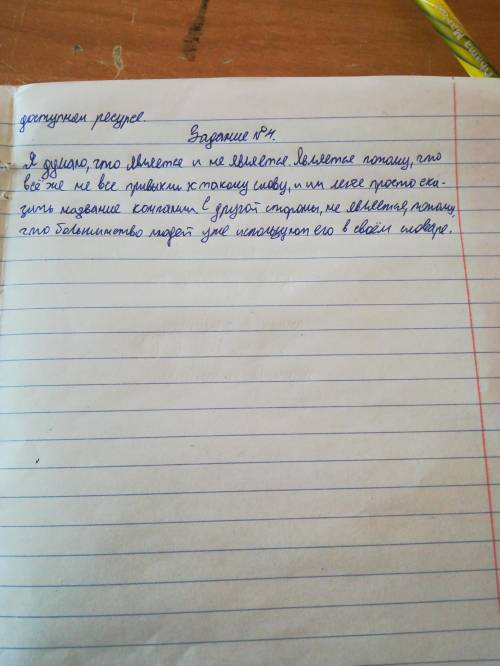 доступном ресурсе.
Задание №4.
Я думаю, что является и не является. Является потому, что
всё же не все привыкли к такому слову, и им легче просто ска-
зать название компании с другой стороны, не является, потому,
что большинство людей уже используют его в своём словаре.